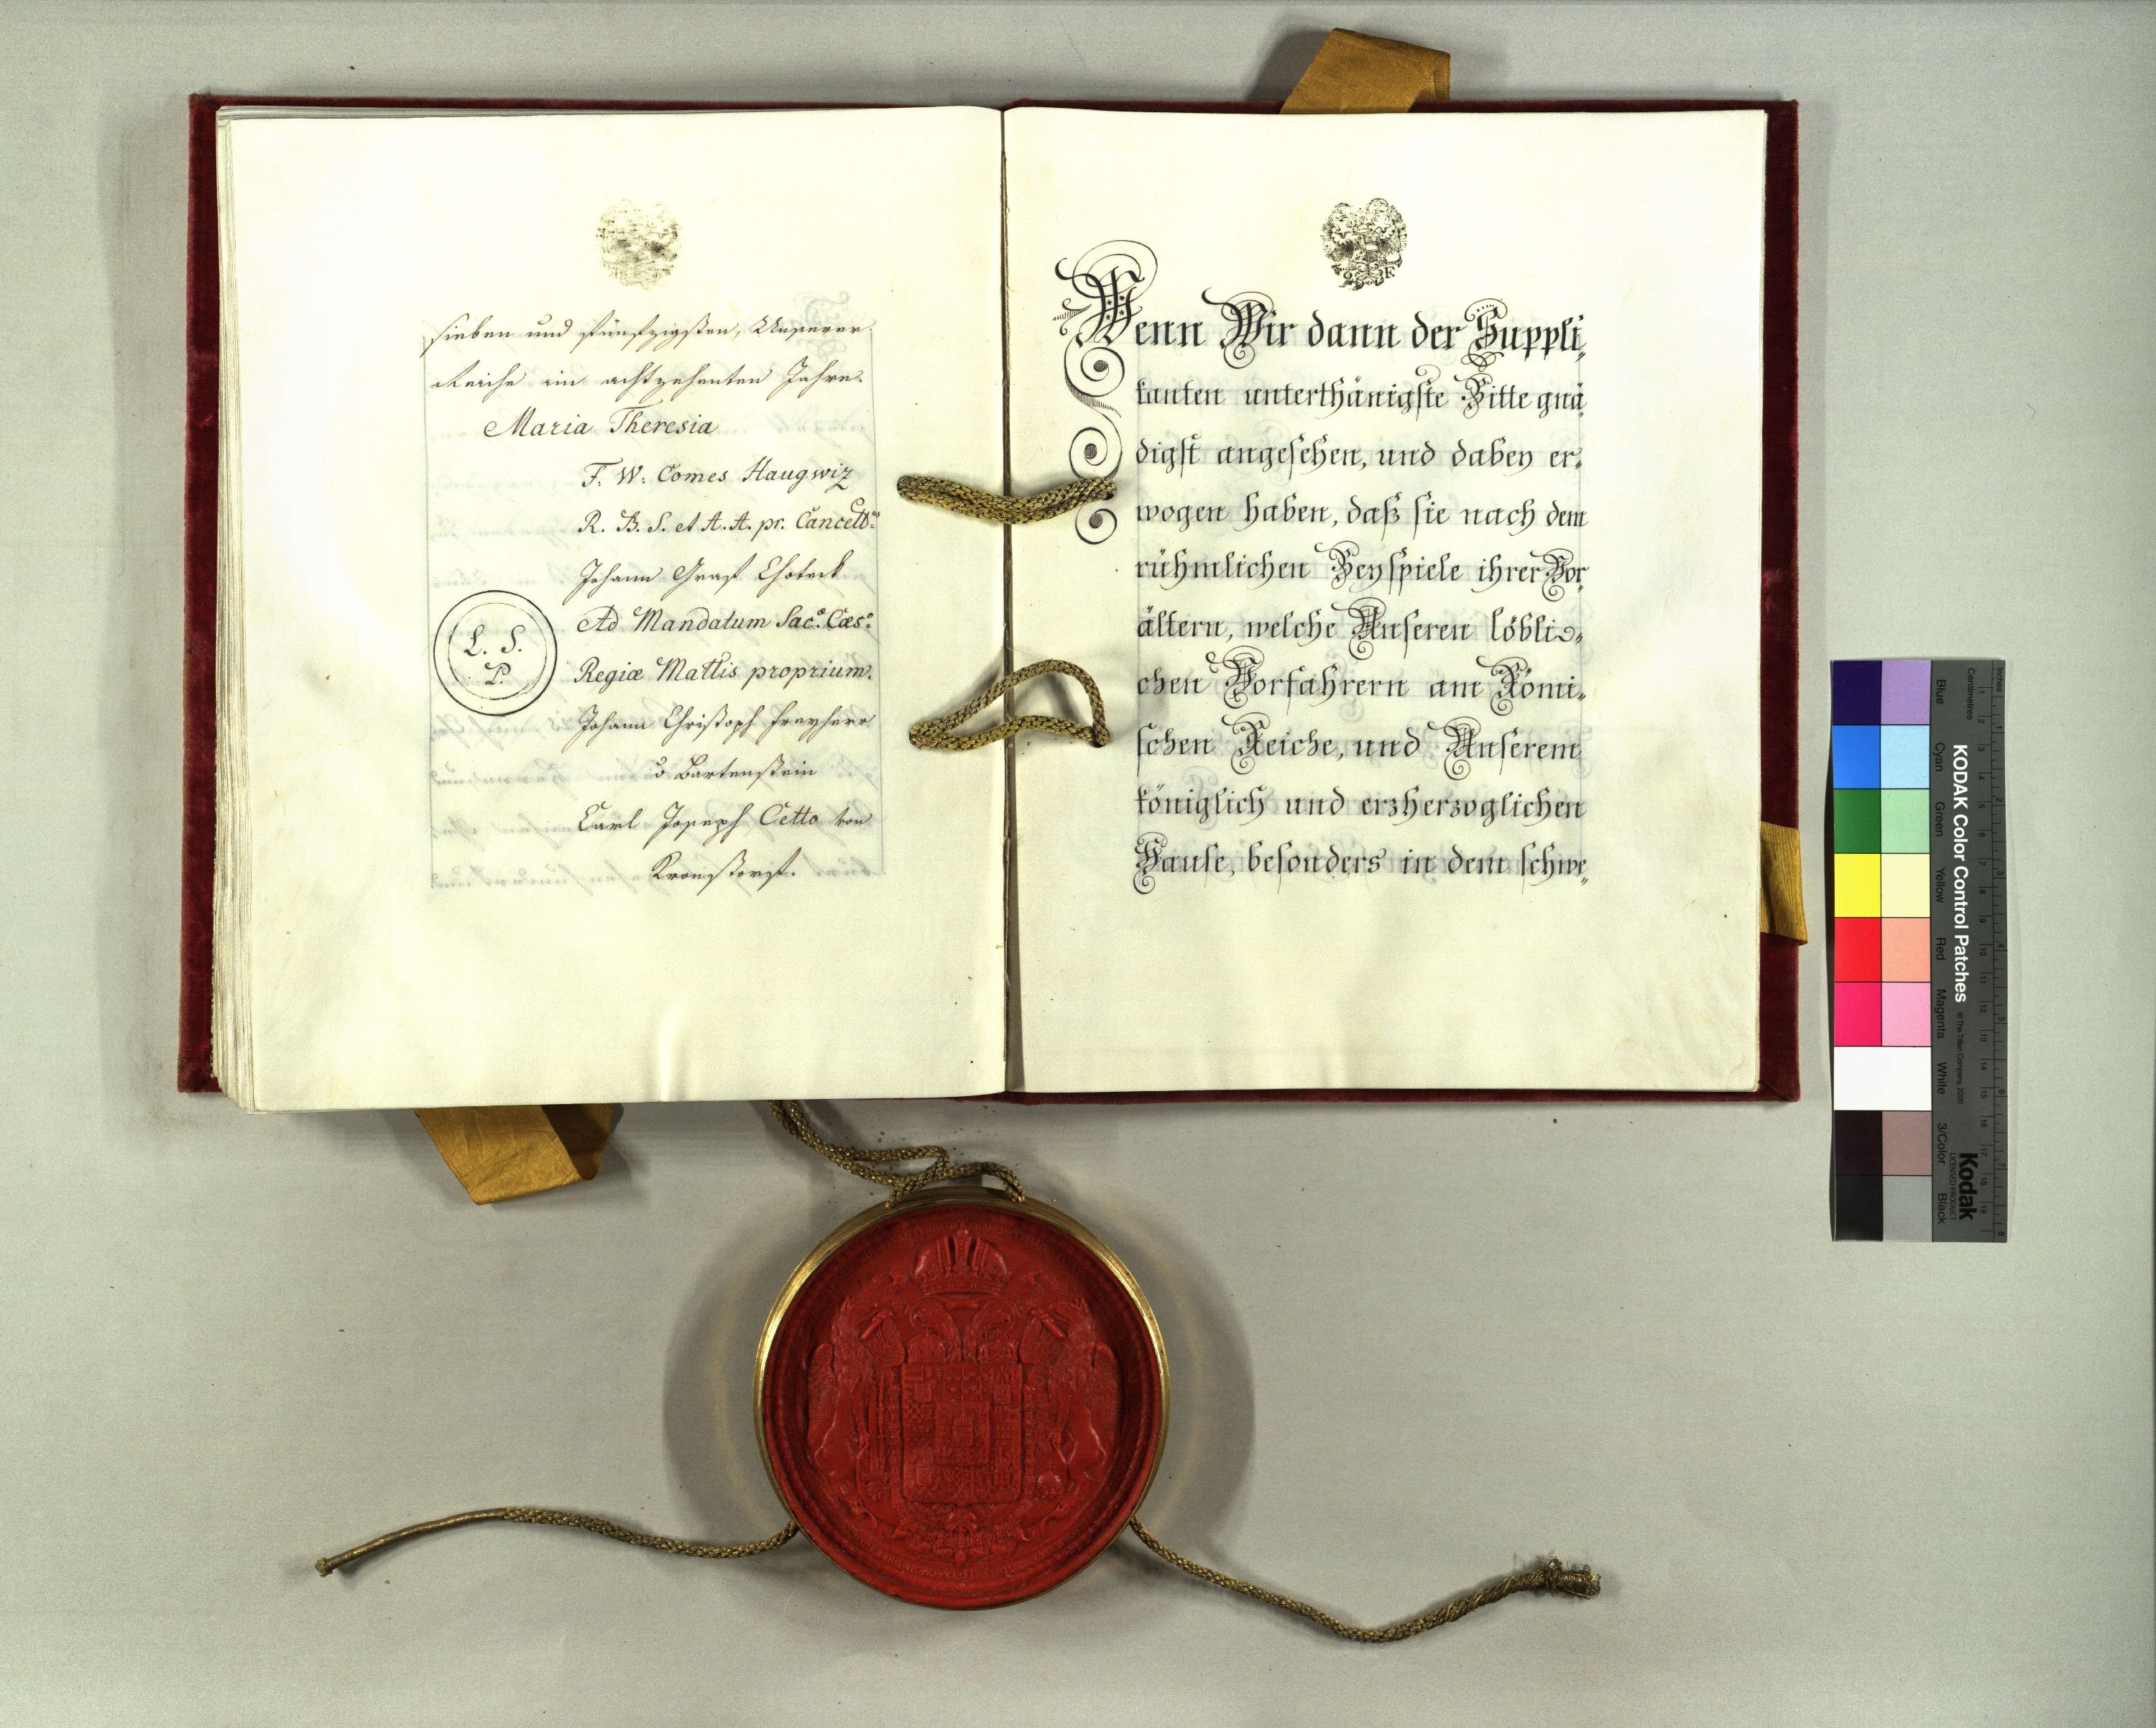 sieben und fünfzigsten, Unserer
Reiche im achtzehenten Jahre.
Maria Theresia
F. W. Comes Haugwiz
R. B. S. et A. A. pr. Cancell:us
Johann Graf Choteck
L. S.
P.
Ad Mandatum Sac:æ Cæs:æ
Regiæ Mattis proprium.
Johann Christoph Freyherr
v Bartenstein
Carl Joseph Cetto von
Kronstorf.
Wenn Wir dann der Suppli-
kanten unterthänigste Bitte gnä-
digst angesehen, und dabey er-
wogen haben, daß sie nach dem
rühmlichen Beyspiele ihrer Vor-
ältern, welche Unseren löbli-
chen Vorfahrern am Römi-
schen Reiche, und Unserem
königlich und erzherzoglichen
Hause, besonders in dem schwe-
KODAK Color Control Patches
© The Tiffen Company, 2000
Kodak
LICENSED PRODUCT
Blue Cyan Green Yellow Red Magenta White 3/Color Black
Centimetres
Inches